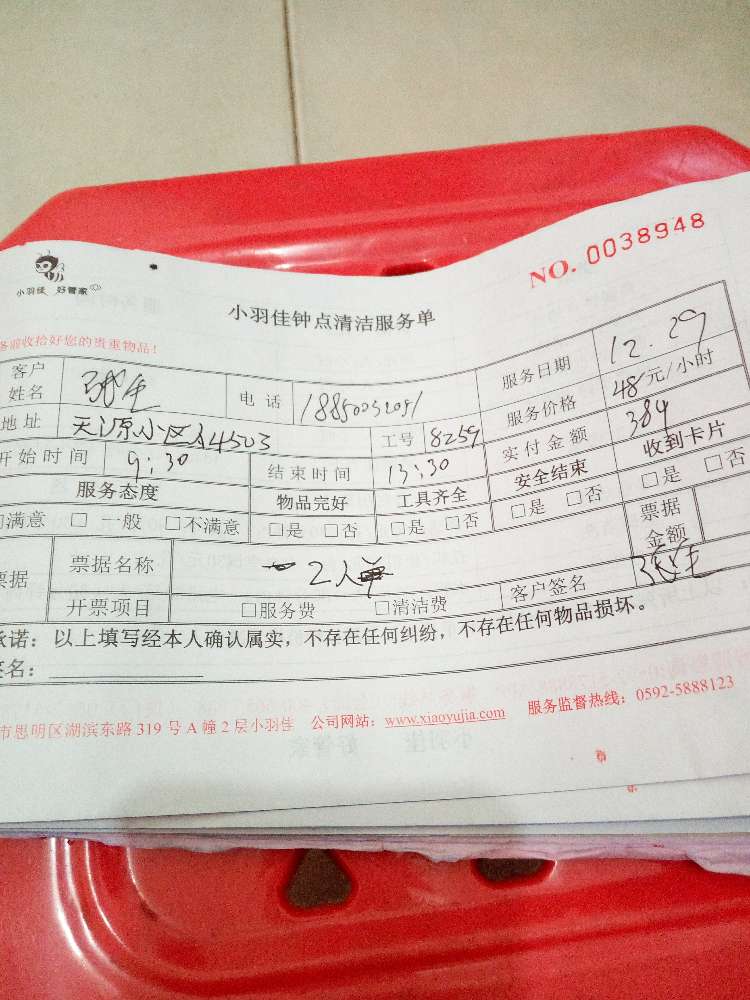 NO. 0038948
小羽佳 好管家
小羽佳钟点清洁服务单
前收拾好您的贵重物品!
客户姓名 张生 电话 18850052051 服务日期 12.29
地址 天源小区A4503 工号 8259 服务价格 48元/小时
开始时间 9:30 结束时间 13:30 实付金额 384
服务态度 物品完好 工具齐全 安全结束 收到卡片
□满意 □一般 □不满意 □是 □否 □是 □否 □是 □否 □是 □否
票据 票据名称 2人单 票据金额
开票项目 □服务费 □清洁费 客户签名 张生
承诺:以上填写经本人确认属实,不存在任何纠纷,不存在任何物品损坏。
签名:
市思明区湖滨东路319号A幢2层小羽佳 公司网站:www.xiaoyujia.com 服务监督热线:0592-5888123